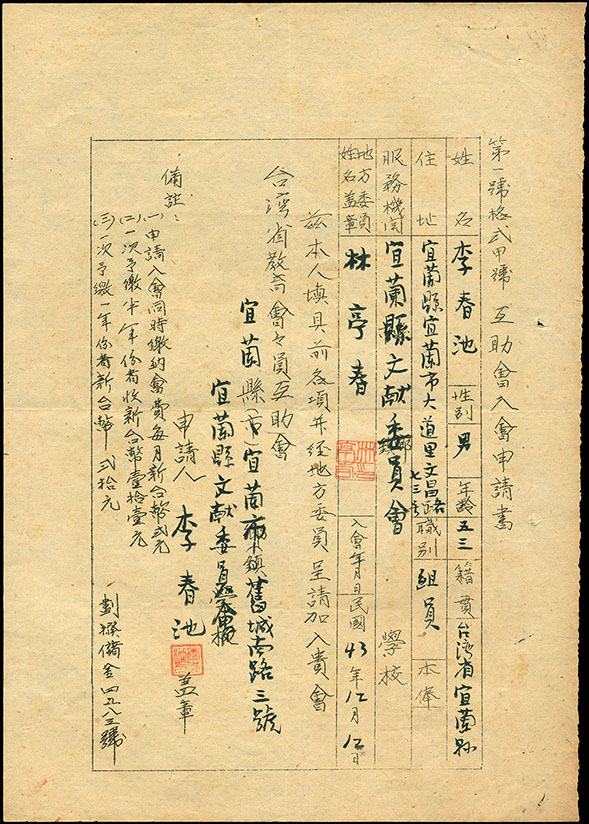 第一號格式甲號 互助會入會申請書
姓名 李春池 性別 男 年齡 五三 籍貫 台湾省宜蘭縣
住址 宜蘭縣宜蘭市大道里文昌路七三號 職別 組員 本俸
服務機関 宜蘭縣文献委員會 學校
地方委員姓名盖章 林亭春 入會年月日 民國43年12月12日
茲本人填具前各項并经地方委員呈請加入貴會
台湾省教育會會員互助會
宜蘭縣(市)宜蘭市鎮舊城南路三號
宜蘭縣文献委員會
申請人 李春池 盖章
備註:
(一)申請入會同時繳納會費每月新台幣弍元
(二)一次予繳半年份者收新台幣壹拾壹元
(三)一次予繳一年份者新台幣弍拾元
劃撥儲金四九八三號